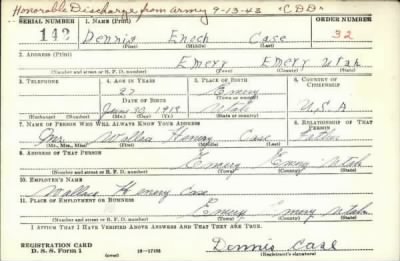 Honorable Discharge from Army 9-13-43 "CDD"
SERIAL NUMBER 1. NAME (Print) ORDER NUMBER
142 Dennis Enoch Case 32
(First) (Middle) (Last)
2. ADDRESS (Print)
Emery Emery Utah
(Number and street or R. F. D. number) (Town) (County) (State)
3. TELEPHONE 4. AGE IN YEARS 5. PLACE OF BIRTH 6. COUNTRY OF CITIZENSHIP
27 Emery
DATE OF BIRTH (Town or county)
June 30 1913 Utah U.S.A
(Exchange) (Number) (Mo.) (Day) (Yr.) (State or country)
7. NAME OF PERSON WHO WILL ALWAYS KNOW YOUR ADDRESS 8. RELATIONSHIP OF THAT PERSON
Mr. Wallace Henry Case Father
(Mr., Mrs., Miss) (First) (Middle) (Last)
9. ADDRESS OF THAT PERSON
Emery Emery Utah
(Number and street or R. F. D. number) (Town) (County) (State)
10. EMPLOYER'S NAME
Wallace Henry Case
11. PLACE OF EMPLOYMENT OR BUSINESS
Emery Emery Utah
(Number and street or R. F. D. number) (Town) (County) (State)
I AFFIRM THAT I HAVE VERIFIED ABOVE ANSWERS AND THAT THEY ARE TRUE.
REGISTRATION CARD
D. S. S. Form 1 (over) Dennis Case
(Registrant's signature)